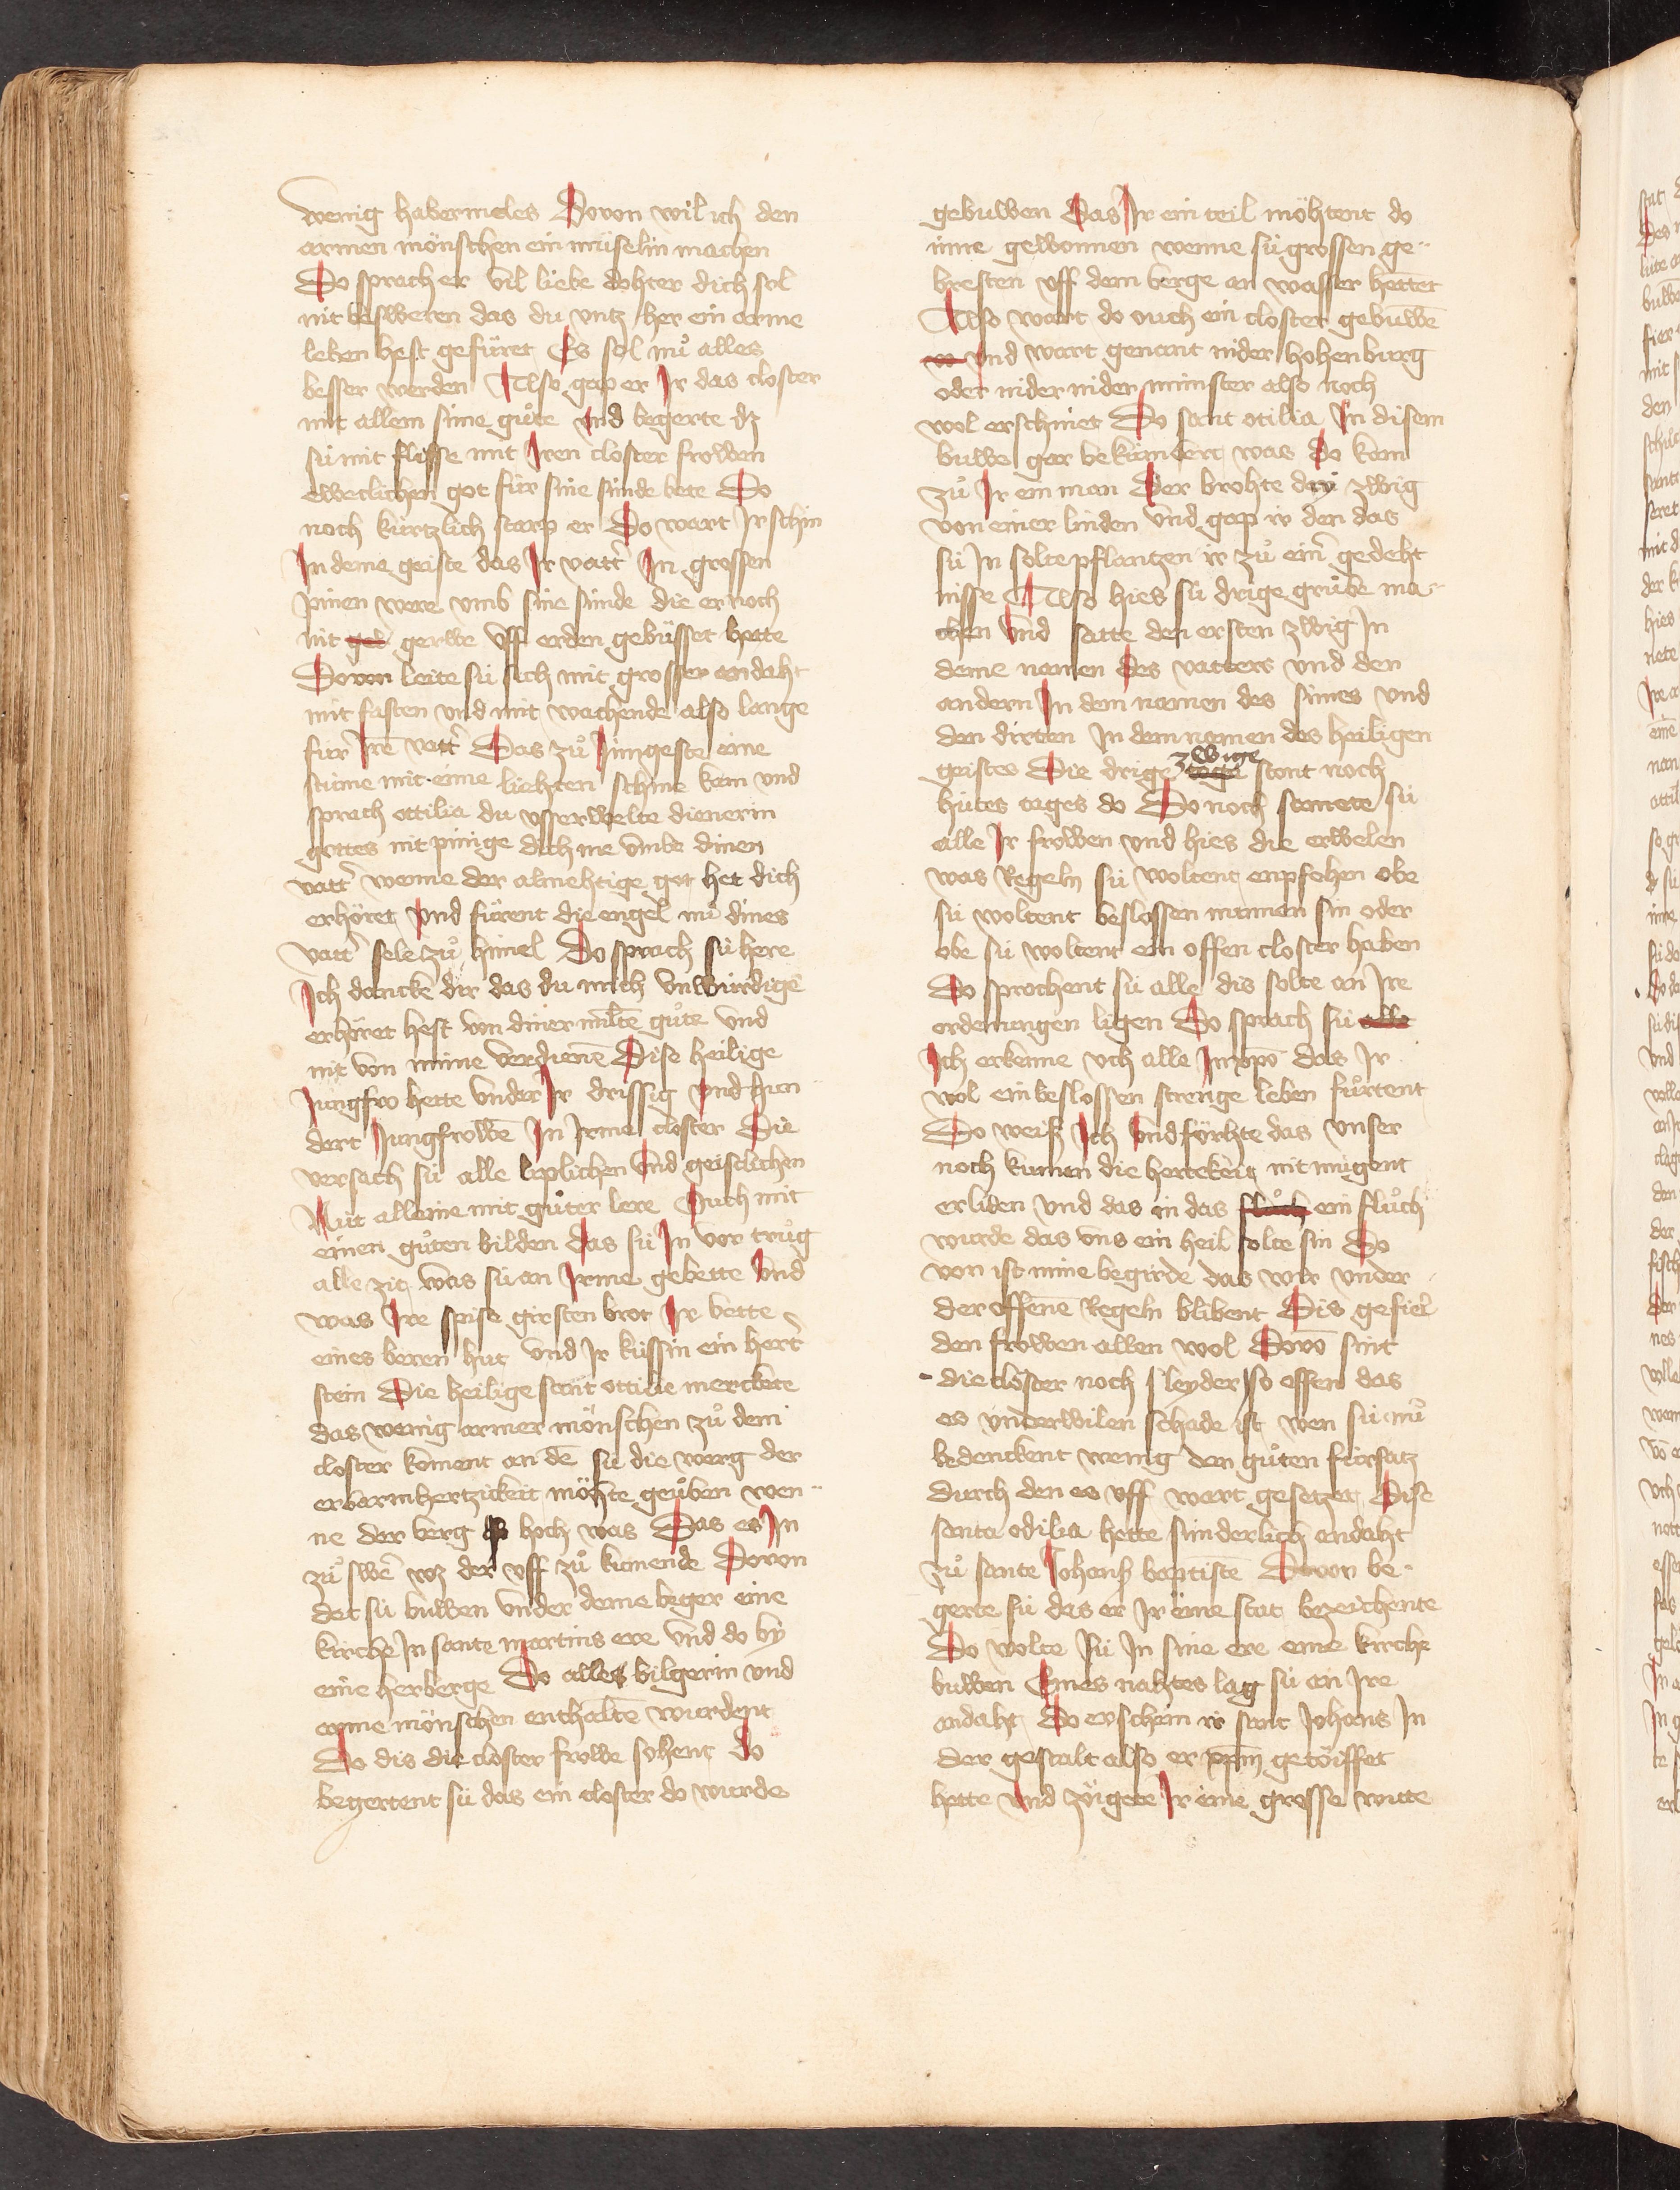 wenig habermeles Dovon wil ich den
armen mönschen ein müselin machen
Do sprach er vil liebe dohter dich sol
nit besweren das du vntz her ein arme
leben hest gefüret Es sol nuͦ alles
besser werden Also gap er Ir das closter
mit allem sime guͦte vnd begerte dz
sü mit flisse mit Iren closter frowen
eweclichen got für sine sünde bete Do
noch kürtzlich starp er Do wart Ir schin
In deme geiste das Ir vatter In grossen
pinen were vmb sine sünde die er noch
nit gerwe vff erden gebüsset hette
Dovon leite sü sich mit grosser andaht
mit fasten vnd mit wachende also lange
für Irē vattˀ Das zuͦ Iüngeste eine
stime mit eime liehten schine kam vnd
sprach ottilia du vsserwelte dienerin
gottes nit pinige dich me vmbe dinen
vattˀ wenne der almehtige got het dich
erhöret vnd fürent die engel nuͦ dines
vattˀ sele zuͦ himel Do sprach sü here
Ich dancke dir das du mich vnwürdigē
erhöret hest von diner miltē guͦte vnd
nit von mime verdienē Dise heilige
Jungfro hette vnder Ir drissig vnd hun
dert Jungfrowē In Irme closter Die
versach sü alle liplichen vnd geistlichen
Nüt alleine mit guͦter lere Ouch mit
einen guͦten bilden das sü In vor truͦg
alle zit was sü an Irme gebette vnd
was Ire spise girsten brot Ir bette
eines beren hut vnd Ir küssin ein hertˀ
stein Die heilige sant ottilie merckete
das wenig armer mönschen zuͦ dem
closter koment an dē sü die werg der
erbarmhertzikeit möhte geuͦben wen-
ne der berg hoch was Das es In
zuͦ swē wz der vff zuͦ kumende Dovon
det sü buwen vnder deme beger eine
kirche In sante martins ere vnd do by
eine herberge Do alles bilgerin vnd
arme mönschen enthaltē wurdent
Do dis die closter frowe sohent do
begertent sü das ein closter do wurde
gebuwen Das Ir ein teil möhtent do
inne gewonnen wenne sü grossen ge-
bresten vff dem berge an wasser hettēt
Also wart do ouch ein closter gebuwē
vnd wart genant nider hohenburg
oder nider nider münster also noch
wol erschinet Do sant otilia In disem
buwe gar bekümbert was do kam
zuͦ Ir ein man Der brohte drü zwig
von einer linden vnd gap ir den das
sü In solte pflantzen ir zuͦ einˀ gedeht
nisse Also hies sü drige gruͦbe ma-
chen vnd satte den ersten zwig In
deme namen des vatters vnd den
andern In dem namen des sunes vnd
den dirten In dem namen des heiligen
geistes Die drige zwige stont noch
hütes tages do Do noch samete sü
alle Ir frowen vnd hies die erwelen
was Regeln sü woltent enpfohen obe
sü woltent beslossen nunnen sin oder
obe sü woltent ein offen closter haben
Do sprochent sü alle dis solte an Ire
ordenungen ligen Do sprach sü
Ich erkenne vch alle In xpō das Ir
wol ein beslossen strenge leben fuͦrtent
Do weis Ich vnd förhte das vnser
noch kumen die hertekeit nit mügent
erliden vnd das in das ein fluͦch
wurde das vns ein heil solte sin Do
von ist mine begirde das wir vnder
der offenē Regeln blibent Dis gefielˀ
den frowen allen wol Dovō sint
die closter noch leyder so offen das
es vnderwilen schade ist wen sü nuͦ
bedenckent wenig den guͦten fürsatz
durch den es vff wart gesetzet Dise
santa odilia hette sünderlich andaht
zuͦ sante Johans baptistē Dovon be-
gerte sü das er Ir eine stat bezeichente
Do wolte sü In sine ere eine kirche
buwen Eines nahtes lag sü an Ire
andaht Do erschein ir sant Johans In
der gestalt also er xpm getöiffet
hette vnd zöigete Ir eine grosse witte